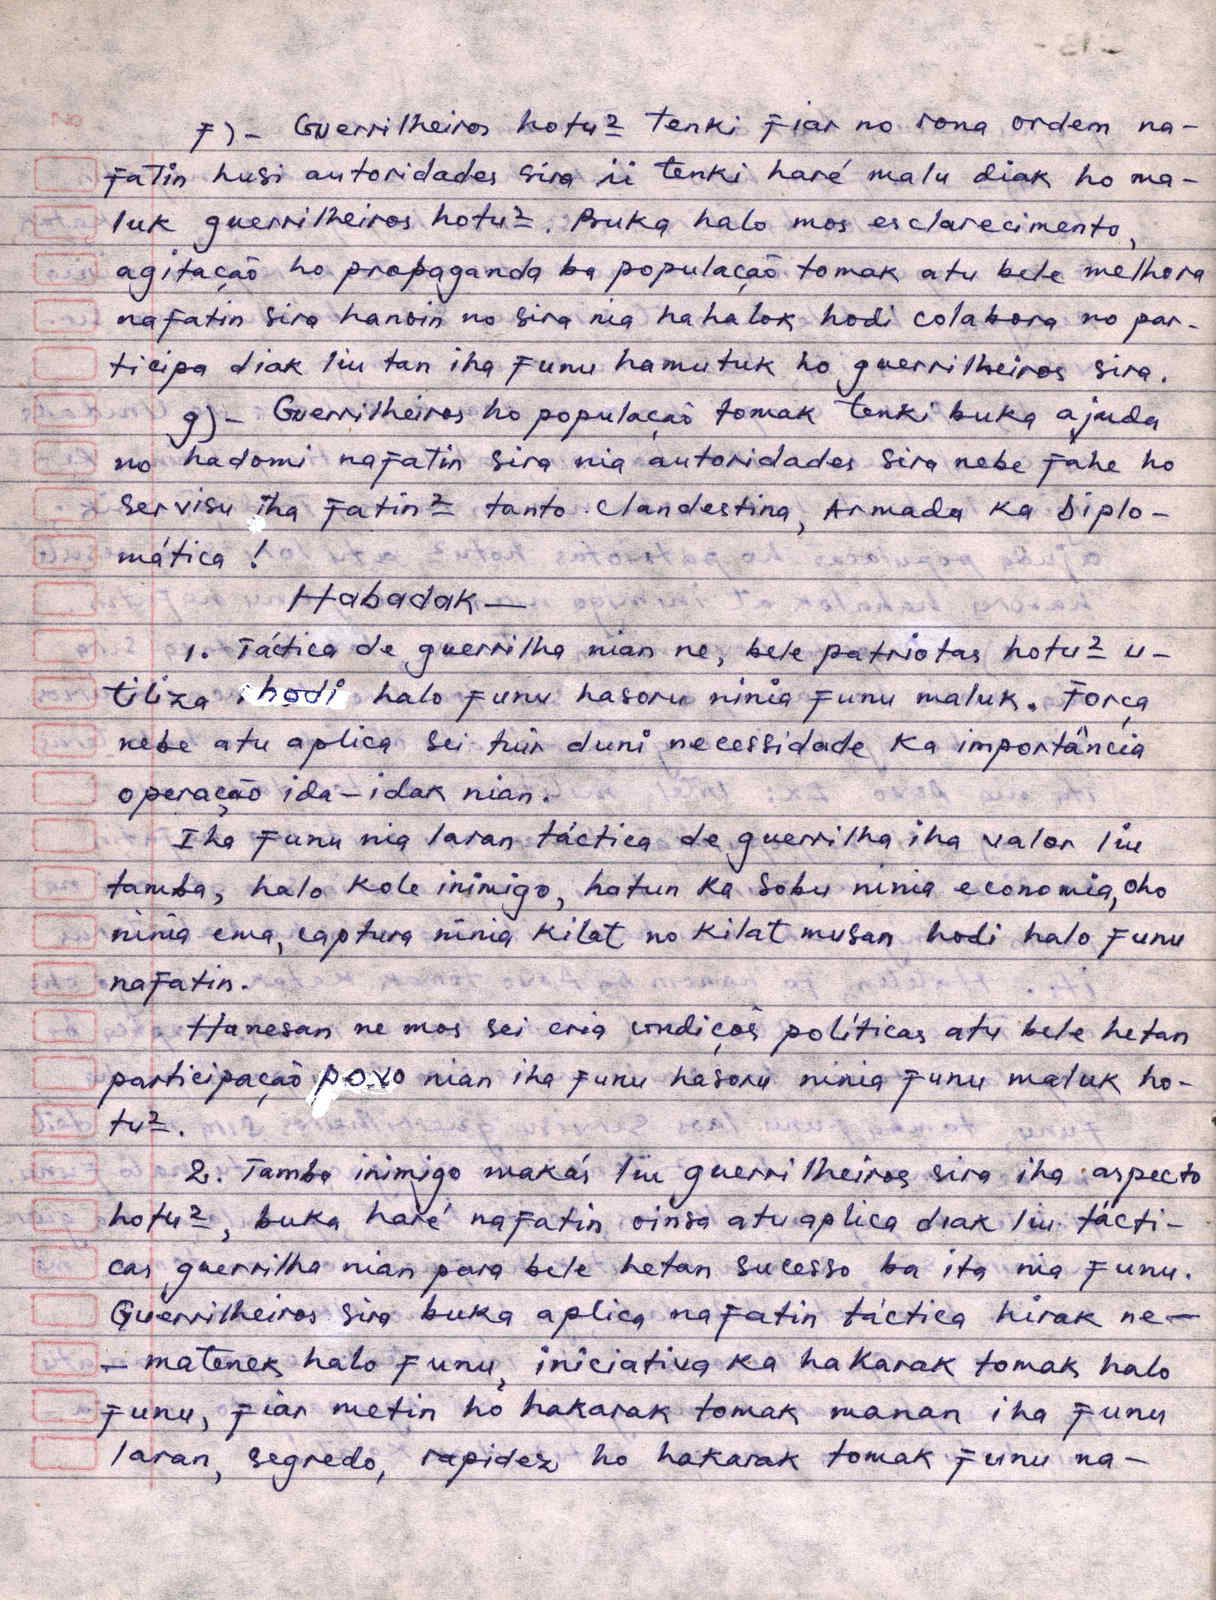 f) - Guerrilheiros hotu2 tenki fiar no rona ordem na-
fatin husi autoridades sira ii tenki haré malu diak ho ma-
luk guerrilheiros hotu2. Buka halo mos esclarecimento,
agitação ho propaganda ba população tomak atu bele melhora
nafatin sira hanoin no sira nia hahalok hodi colabora no par-
ticipa diak liu tan iha funu hamutuk ho guerrilheiros sira.
g) - Guerrilheiros ho população tomak tenki buka ajuda
no hadomi nafatin sira nia autoridades sira nebe fahe ho
servisu iha fatin2 tanto clandestina, Armada ka Diplo-
mática !
Habadak —
1. Táctica de guerrilha nian ne, bele patriotas hotu2 u-
tiliza hodi halo funu hasoru ninia funu maluk. Força
nebe atu aplica sei tuir duni necessidade ka importância
operação ida-idak nian.
Iha funu nia laran táctica de guerrilha iha valor liu
tamba, halo kole inimigo, hatun ka sobu ninia economia, oho
ninia ema, captura ninia kilat no kilat musan hodi halo funu
nafatin.
Hanesan ne mos sei cria condiçõs políticas atu bele hetan
participação povo nian iha funu hasoru ninia funu maluk ho-
tu2.
2. Tamba inimigo makás liu guerrilheiros sira iha aspecto
hotu2, buka haré nafatin oinsa atu aplica diak liu tácti-
cas guerrilha nian para bele hetan sucesso ba ita nia funu.
Guerrilheiros sira buka aplica nafatin táctica hirak ne —
— matenek halo funu, iniciativa ka hakarak tomak halo
funu, fiar metin ho hakarak tomak manan iha funu
laran, segredo, rapidez ho hakarak tomak funu na-